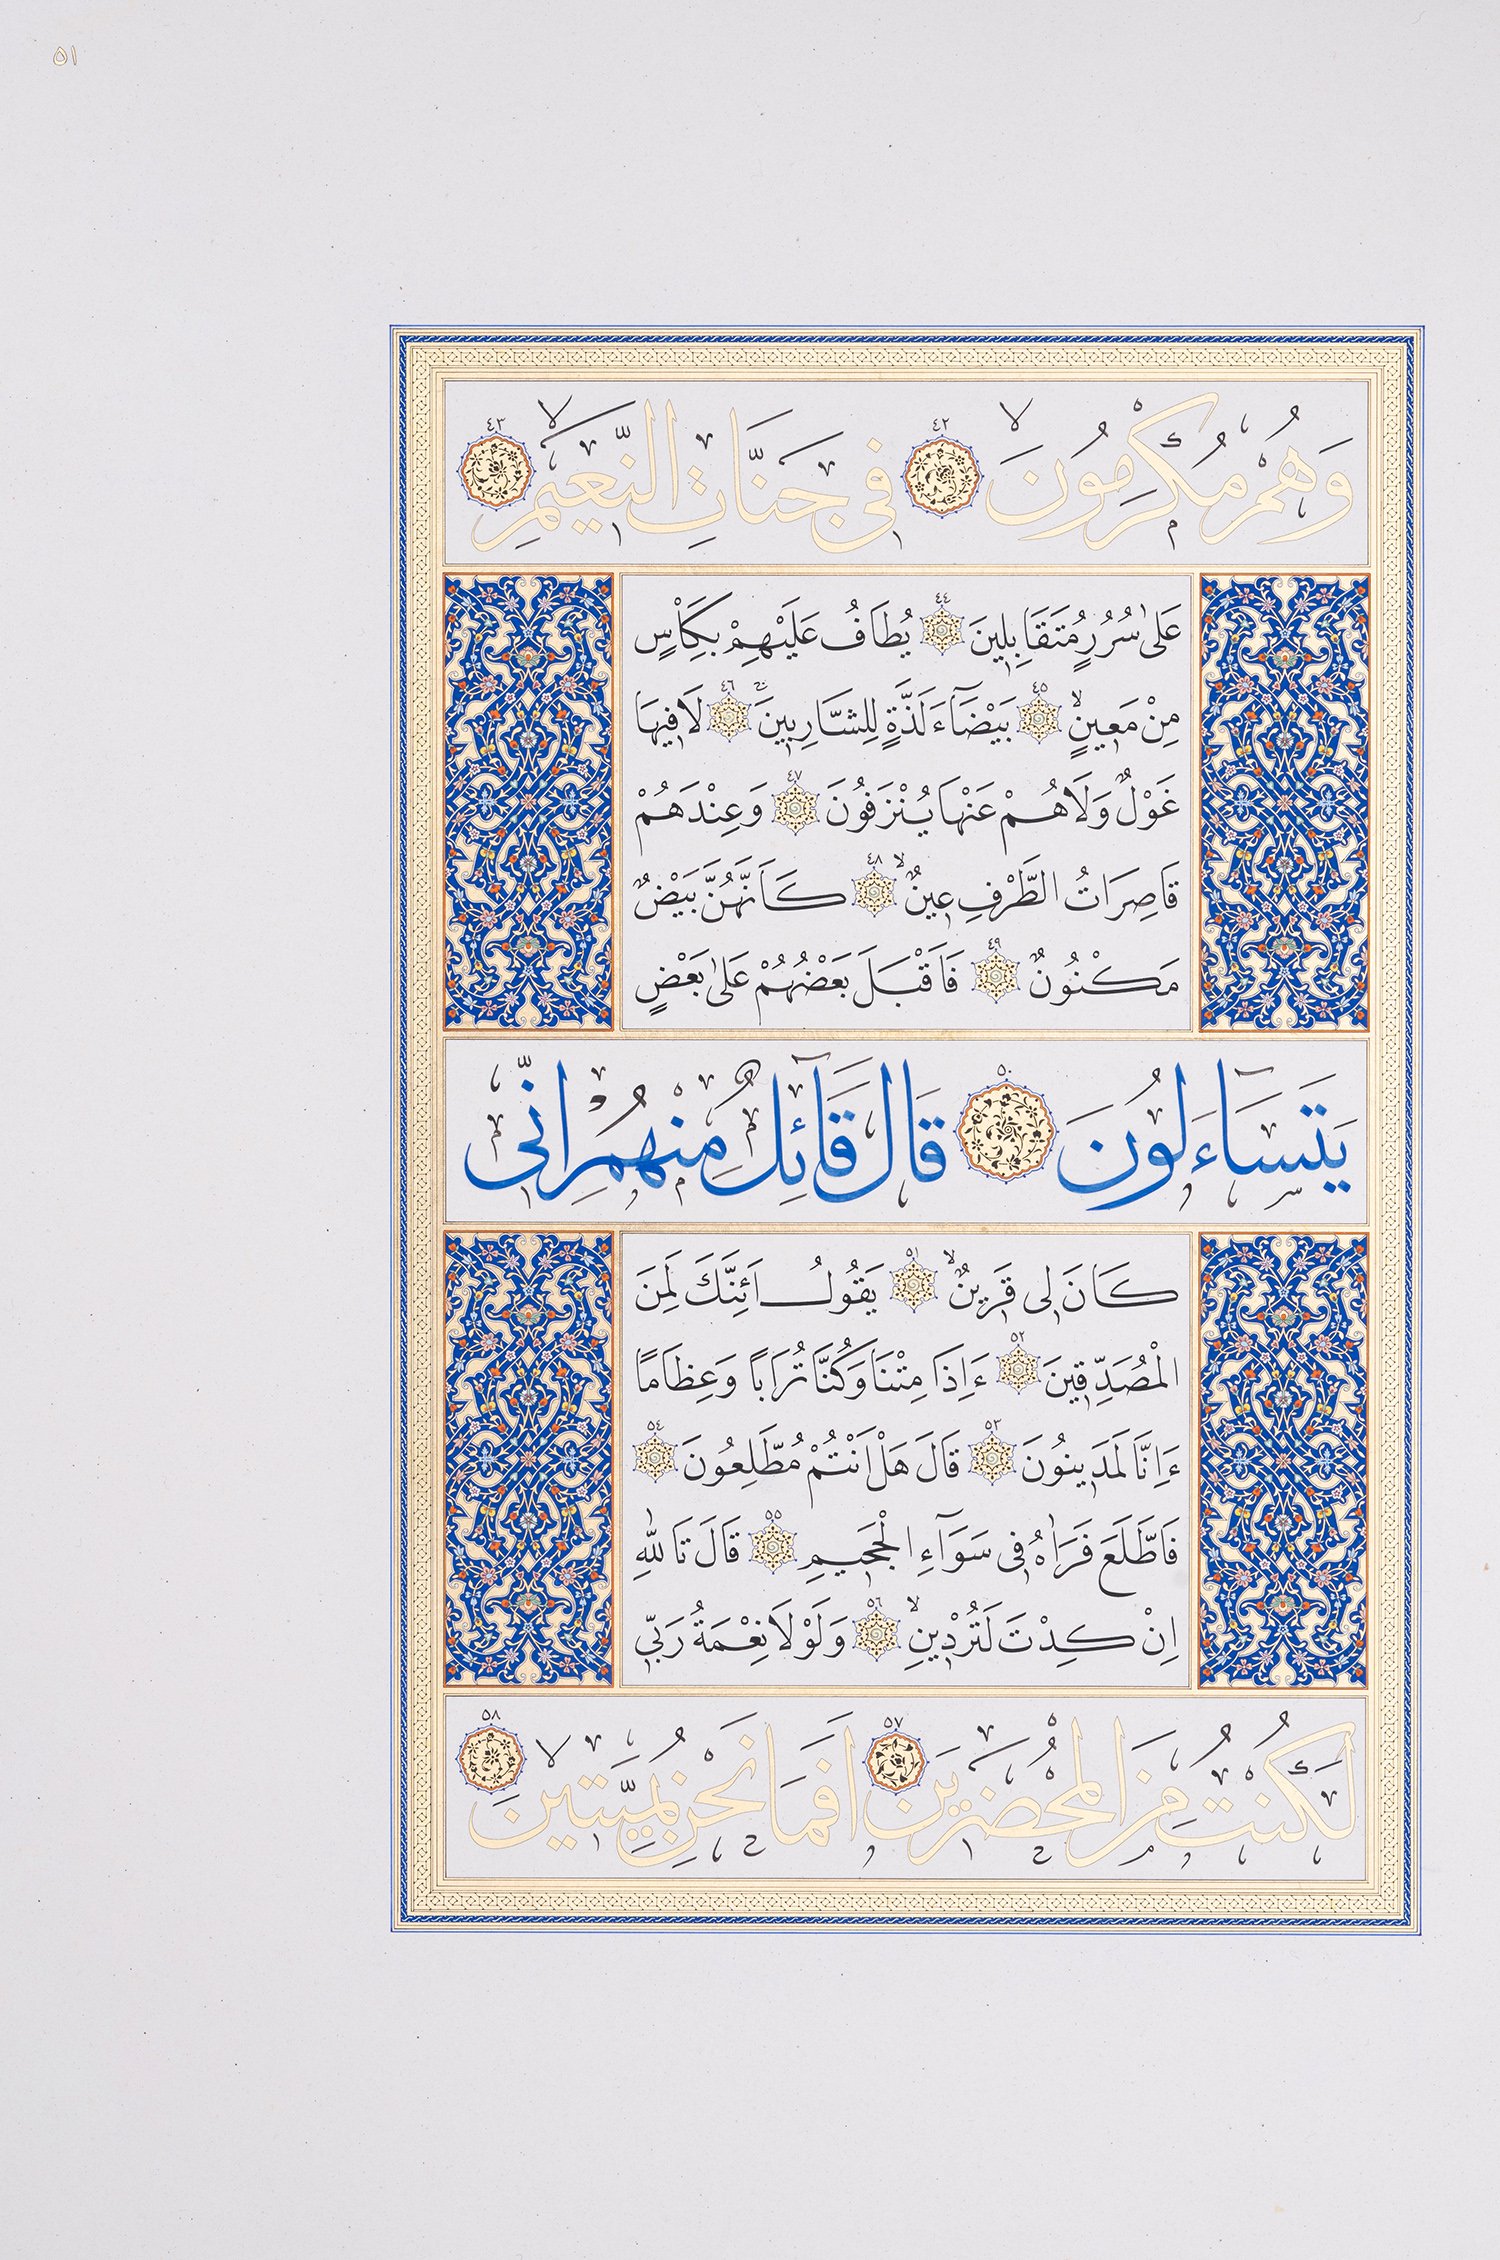 ٥١
وَهُمْ مُكْرَمُونَۙ ٤٢ فى جَنَّاتِ النَّعيمِۙ ٤٣
عَلٰى سُرُرٍ مُتَقَابِلينَ ٤٤ يُطَافُ عَلَيْهِمْ بِكَاْسٍ
مِنْ مَعينٍۙ ٤٥ بَيْضَآءَ لَذَّةٍ لِلشَّارِبينَۚ ٤٦ لَا فيهَا
غَوْلٌ وَلَا هُمْ عَنْهَا يُنْزَفُونَ ٤٧ وَعِنْدَهُمْ
قَاصِرَاتُ الطَّرْفِ عينٌۙ ٤٨ كَاَنَّهُنَّ بَيْضٌ
مَكْنُونٌ ٤٩ فَاَقْبَلَ بَعْضُهُمْ عَلٰى بَعْضٍ
يَتَسَآءَلُونَ ٥٠ قَالَ قَآئِلٌ مِنْهُمْ اِنّى
كَانَ لى قَرينٌۙ ٥١ يَقُولُ اَئِنَّكَ لَمِنَ
الْمُصَدِّقينَ ٥٢ ءَاِذَا مِتْنَا وَكُنَّا تُرَابًا وَعِظَامًا
ءَاِنَّا لَمَدينُونَ ٥٣ قَالَ هَلْ اَنْتُمْ مُطَّلِعُونَ ٥٤
فَاطَّلَعَ فَرَاٰهُ فى سَوَآءِ الْجَحيمِ ٥٥ قَالَ تَاللّٰهِ
اِنْ كِدْتَ لَتُرْدينِۙ ٥٦ وَلَوْلَا نِعْمَةُ رَبّى
لَكُنْتُ مِنَ الْمُحْضَرينَ ٥٧ اَفَمَا نَحْنُ بِمَيِّتينَۙ ٥٨